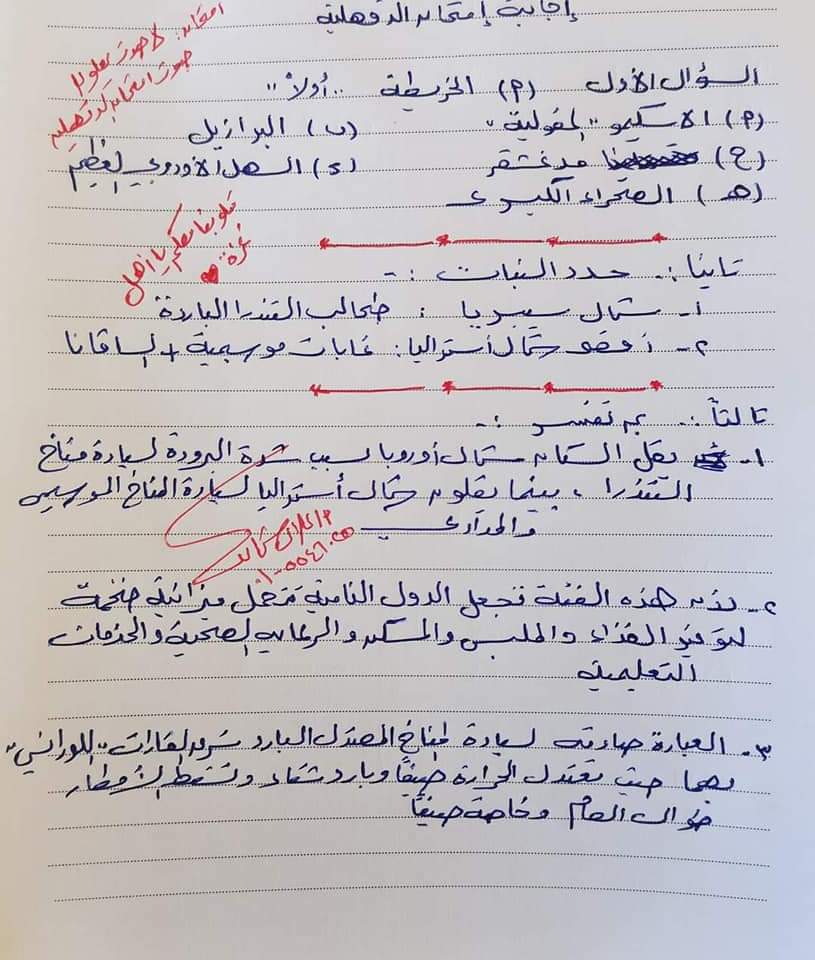 إجابة إمتحان الدقهلية
امتحان: لا صوت يعلو
صوت
السؤال الأول (م) الخريطة .. أولاً ..
(م) الاسكيمو "المغولية" (ب) البرازيل
(ج) مدغشقر (د) السهل الأوروبي العظيم
(هـ) الصحراء الكبرى
قلوبنا معكم يا أهل
غزة
ثانيا:. حدد النبات :-
١- شمال سيبريا : طحالب التندرا الباردة
٢- أقصى شمال أستراليا: غابات موسمية + السافانا
ثالثاً:. بم تفسر :-
١- يقل السكان شمال أوروبا بسبب شدة البرودة لسيادة مناخ
التندرا ، بينما يقلون شمال أستراليا لسيادة المناخ الموسمي
والمداري
٢- لأن هذه الفئة تجعل الدول النامية تتحمل ميزانية ضخمة
لتوفير الغذاء والملبس والمسكن والرعاية الصحية والخدمات
التعليمية
٣- العبارة صادقه لسيادة المناخ المعتدل البارد شرق القارات "اللورانسي"
بهما حيث تعتدل الحرارة صيفاً وبارد شتاء وتسقط الأمطار
طوال العام وخاصة صيفاً